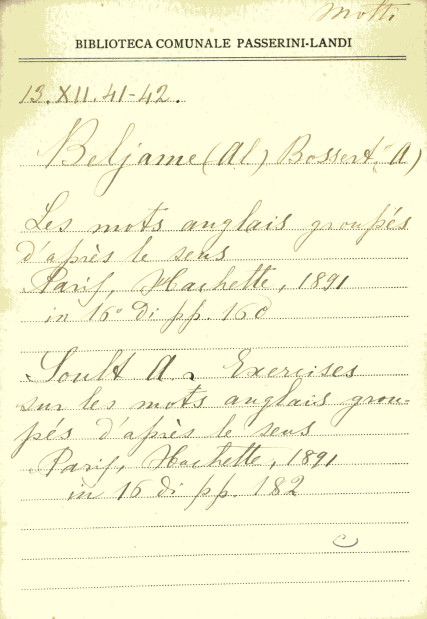 Motti
BIBLIOTECA COMUNALE PASSERINI-LANDI
13.XII.41-42.
Beljame (Al) Bossert A)
Les mots anglais groupés
d'après le sens
Paris, Hachette, 1891
in 16° di pp. 160
Soult A. Exercises
sur les mots anglais grou-
pés d'après le sens
Paris, Hachette, 1891
in 16 di pp. 182
C